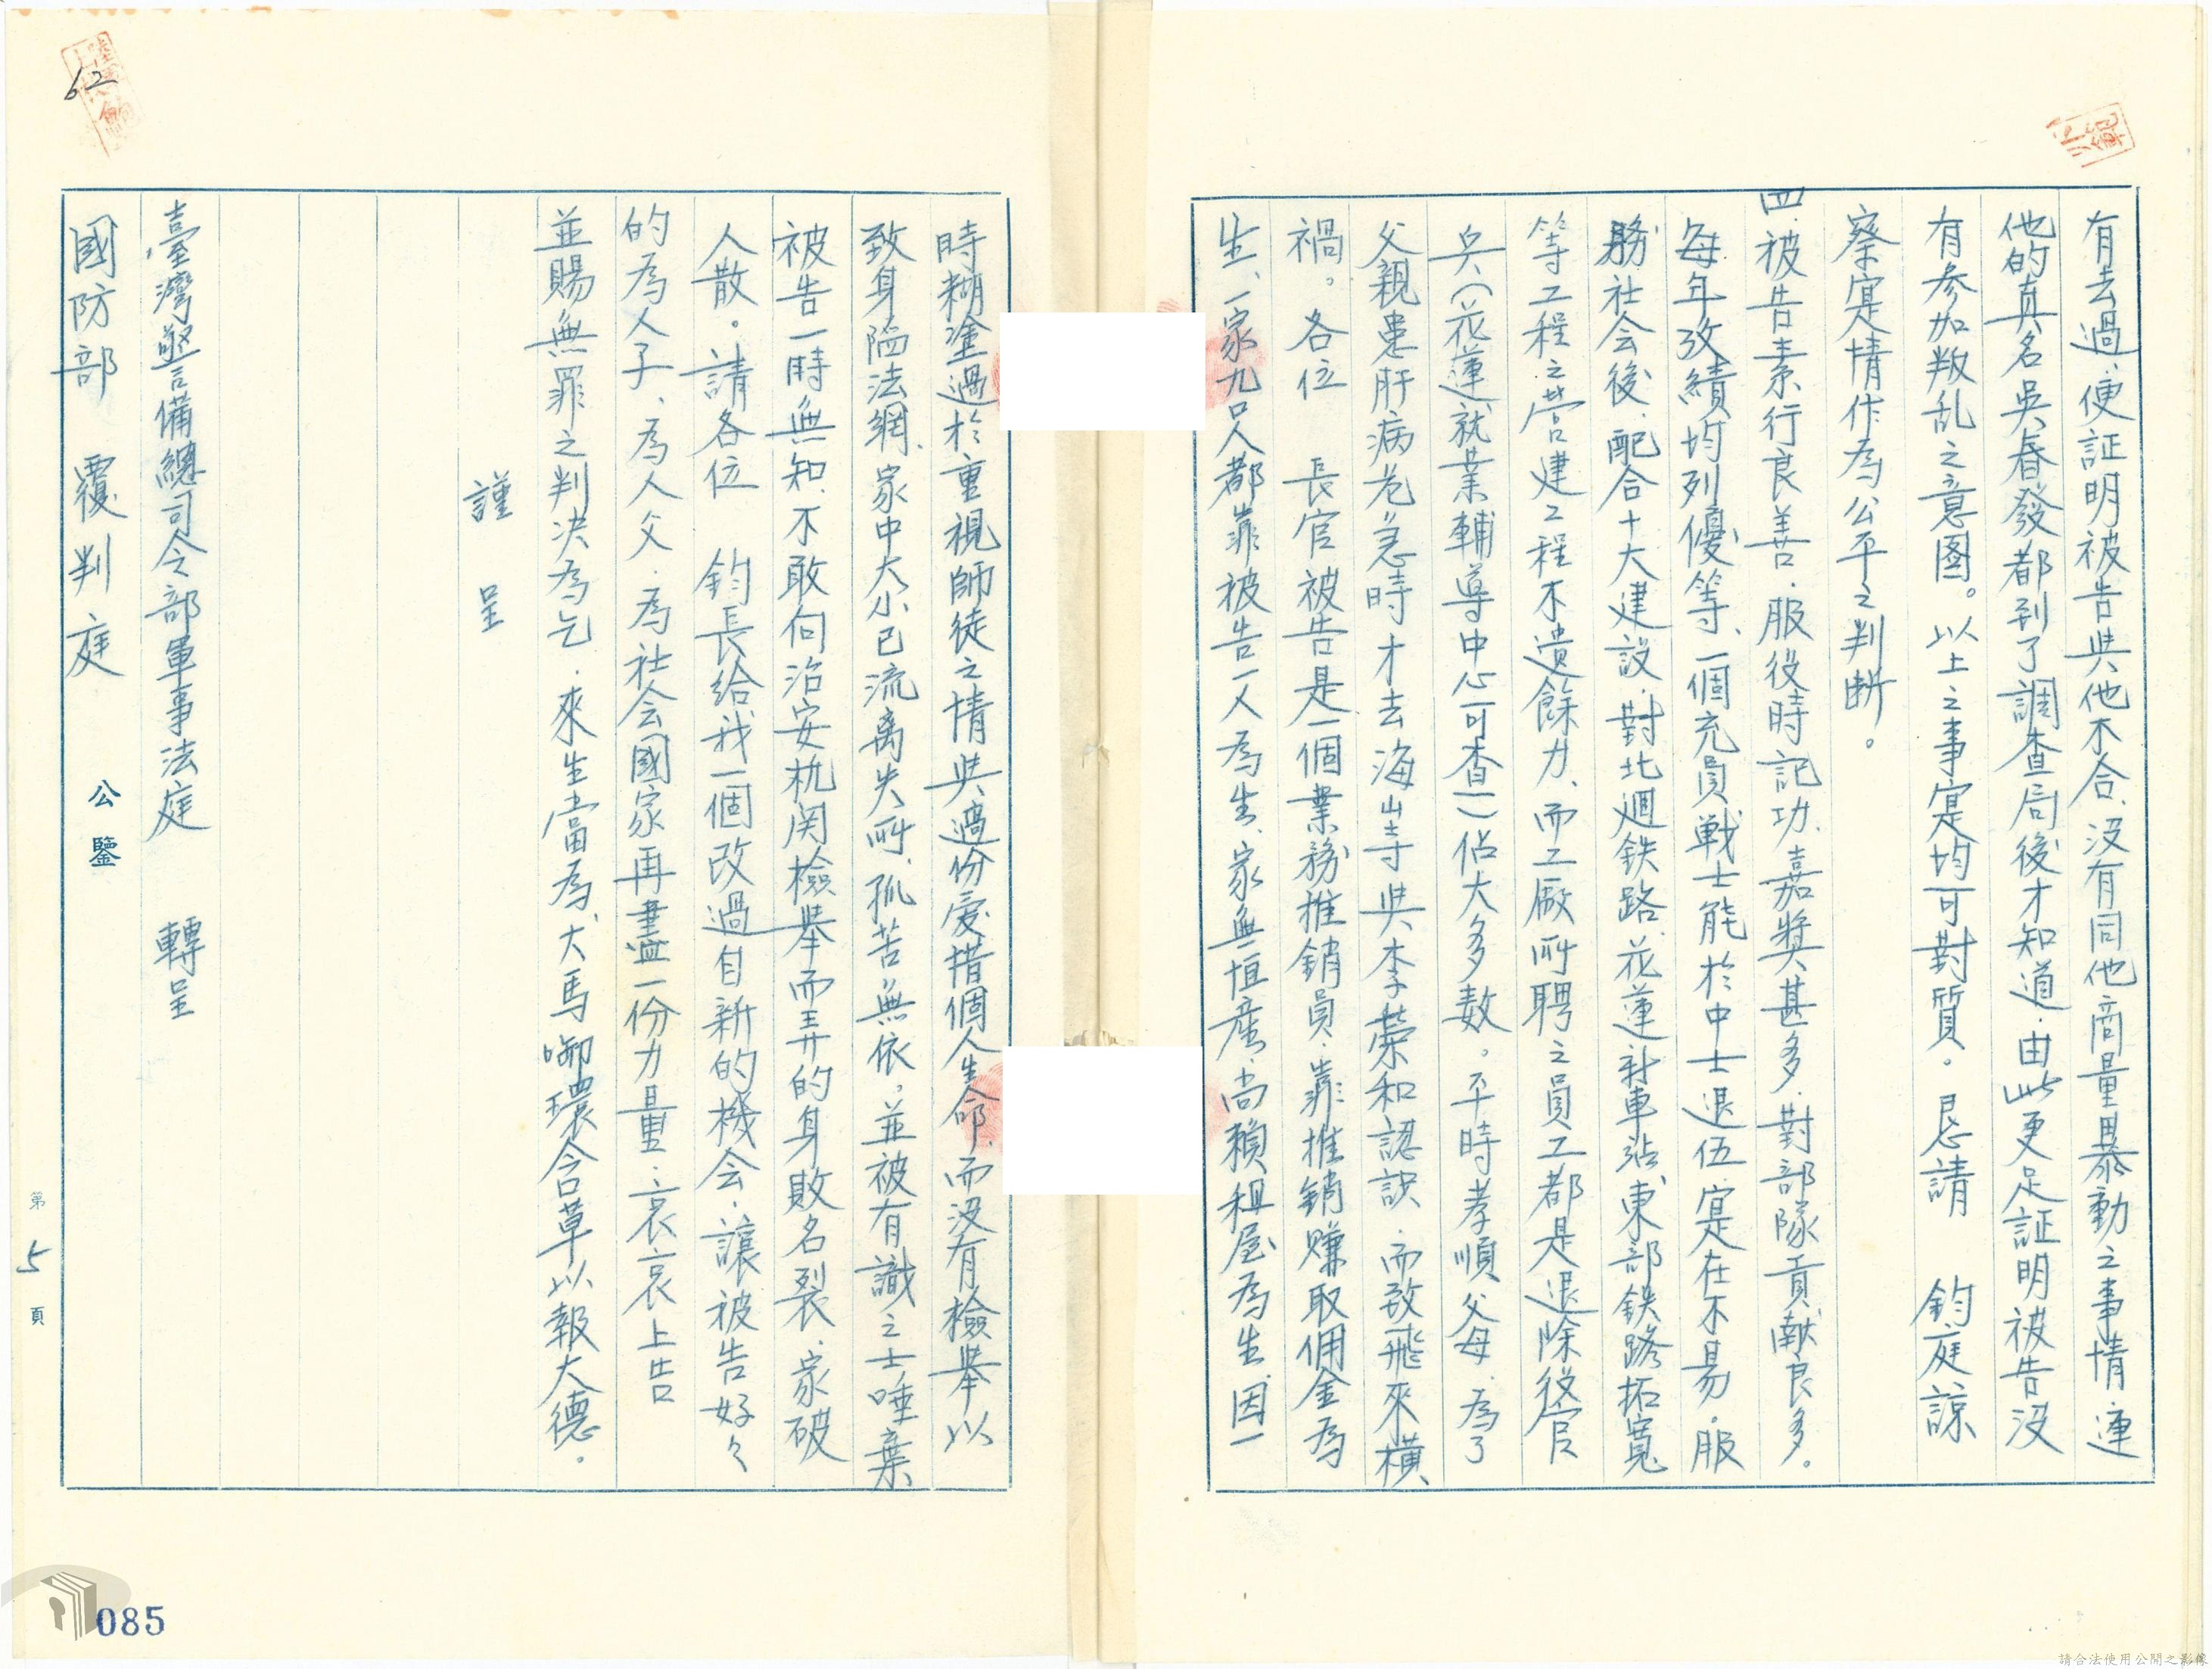 有去過、便証明被告與他不合、沒有同他商量暴動之事情、連
他的真名吳春發都到了調查局後才知道、由此更足証明被告沒
有參加叛乱之意图。以上之事寔均可對質。忌請　鈞庭諒
察寔情作為公平之判断。
四、被告素行良善、服役時記功、嘉獎甚多、對部隊貢献良多。
每年攷績均列優等、一個充員戰士能於中士退伍寔在不易、服
務社会後、配合十大建設、對北迴鉄路、花蓮新車站、東部鉄路拓寬
等工程之营建工程不遺餘力、而工廠所聘之員工都是退除役官
兵（花蓮就業輔導中心可查一）佔大多數。平時孝順父母、為了
父親患肝病危急時才去海山寺與李荣和認識、而致飛來橫
禍。各位　長官被告是一個業務推銷員、靠推銷赚取佣金為
生、一家九口人都靠被告一人為生、家無恒產、尚賴租屋為生、因一
時糊塗過於重視師徒之情與過份愛惜個人生命、而沒有檢举以
致身陷法網、家中大小已流离失所、孤苦無依、並被有識之士唾棄
被告一時無知、不敢向治安机関檢举而弄的身敗名裂、家破
人散。請各位　鈞長給我一個改過自新的機会、讓被告好々
的為人子、為人父、為社会國家再盡一份力量、哀哀上告
並賜無罪之判决為乞、來生當為、犬馬啣環含草以報大德。
謹　呈
臺灣警備總司令部軍事法庭　轉呈
國防部　覆判庭　公鑒
第 5 頁
62
085
請合法使用公開之影像